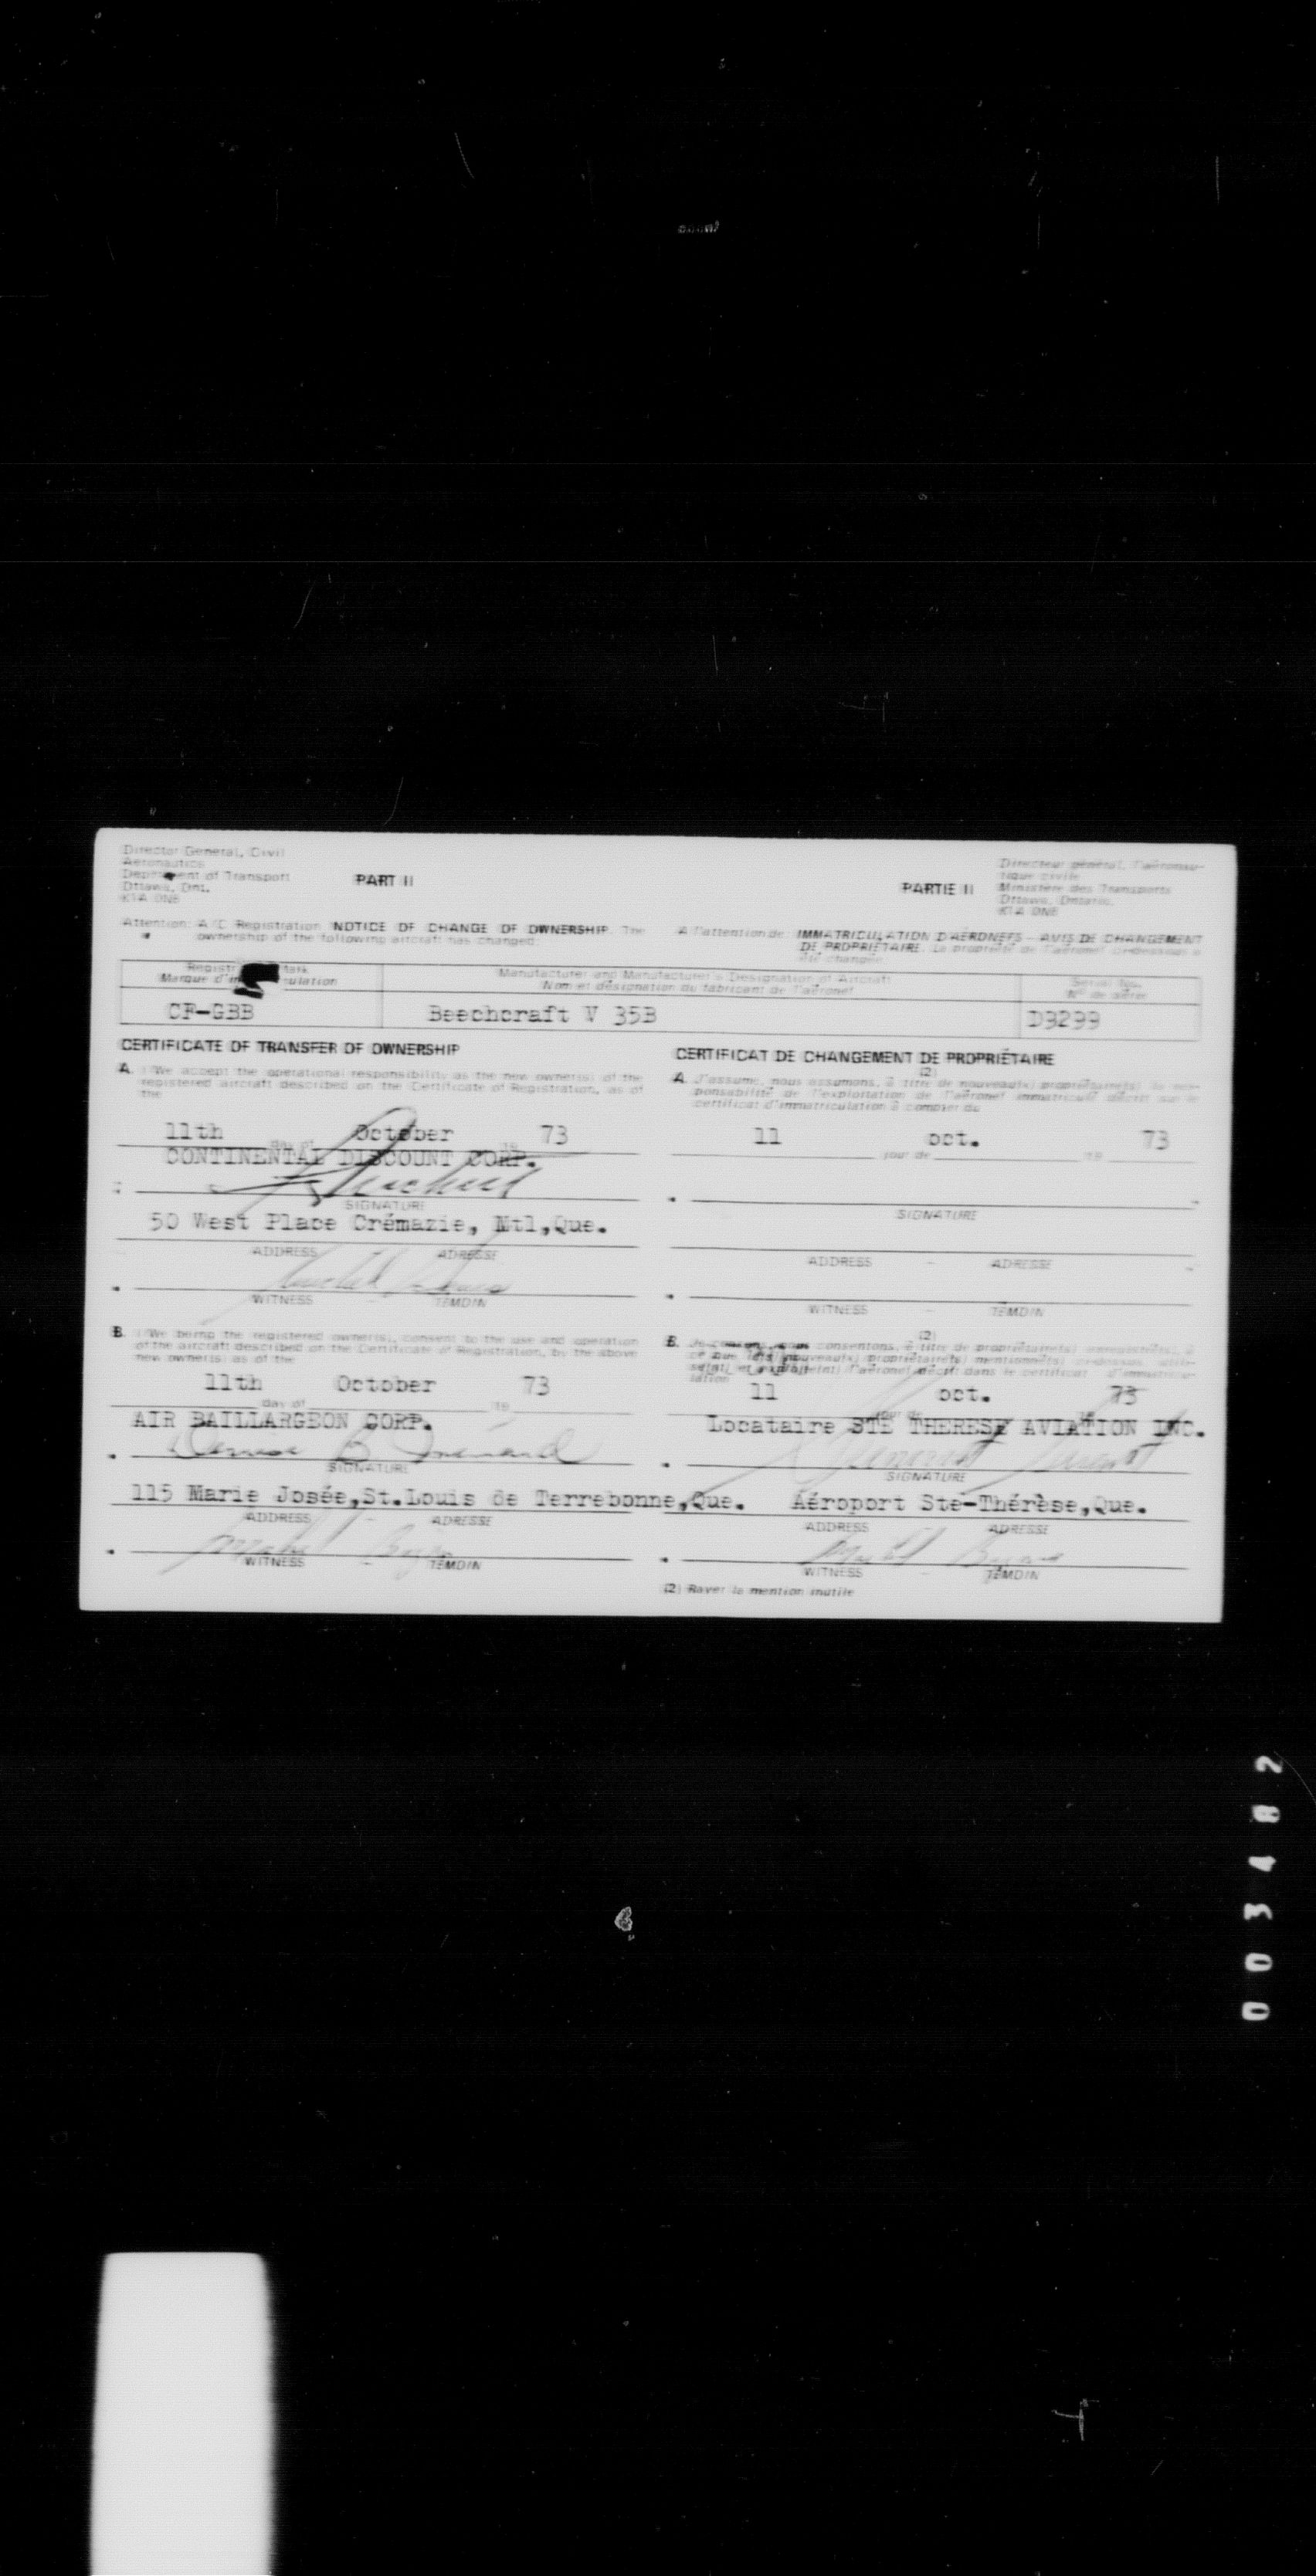 Director General, Civil
Aeronautics
Department of Transport
Ottawa, Ont.
K1A 0N8
PART II
PARTIE II
Directeur général, l'aéronau-
tique civile
Ministère des Transports
Ottawa, Ontario.
K1A 0N8
Attention: A/C Registration NOTICE OF CHANGE OF OWNERSHIP. The
ownership of the following aircraft has changed:
A l'attention de: IMMATRICULATION D'AÉRONEFS - AVIS DE CHANGEMENT
DE PROPRIÉTAIRE. La propriété de l'aéronef ci-dessous a
été changée:
Registr Mark
Marque d'im culation
Manufacturer and Manufacturer's Designation of Aircraft
Nom et désignation du fabricant de l'aéronef
Serial No.
Nº de série
CF-GBB
Beechcraft V 35B
D9299
CERTIFICATE OF TRANSFER OF OWNERSHIP
A. I/We accept the operational responsibility as the new owner(s) of the
registered aircraft described on the Certificate of Registration, as of
the
11th day of October 19 73
CONTINENTAL DISCOUNT CORP.
SIGNATURE
50 West Place Crémazie, Mtl,Que.
ADDRESS ADRESSE
WITNESS - TÉMOIN
B. I/We being the registered owner(s), consent to the use and operation
of the aircraft described on the Certificate of Registration, by the above
new owner(s) as of the
11th October 73
day of 19
AIR BAILLARGEON CORP.
SIGNATURE
115 Marie Josée,St.Louis de Terrebonne,Que.
ADDRESS ADRESSE
WITNESS TÉMOIN
CERTIFICAT DE CHANGEMENT DE PROPRIÉTAIRE
(2)
A. J'assume, nous assumons, à titre de nouveau(x) propriétaire(s) la res-
ponsabilité de l'exploitation de l'aéronef immatriculé décrit sur le
certificat d'immatriculation à compter du
11 oct. 73
jour de 19
SIGNATURE
ADDRESS - ADRESSE
WITNESS - TÉMOIN
(2)
B. consentons, à titre de propriétaire(s) enregistré(s), à
ce que nouveau(x) propriétaire(s) mentionné(s) ci-dessus, utili-
l'aéronef décrit dans le certificat d'immatricu-
lation
11 oct. 73
Locataire STE THERESE AVIATION INC.
SIGNATURE
Aéroport Ste-Thérèse,Que.
ADDRESS ADRESSE
WITNESS - TÉMOIN
(2) Rayer la mention inutile
003482